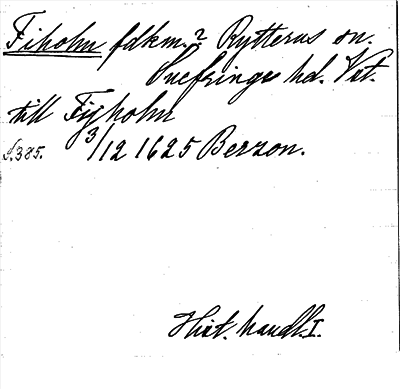 Fiholm fdkm. ? Rytterns sn.
Snefringe hd. Vst.
till Fijholm
s. 385. 3/12 1625 Berzon.
Hist. handl. I.